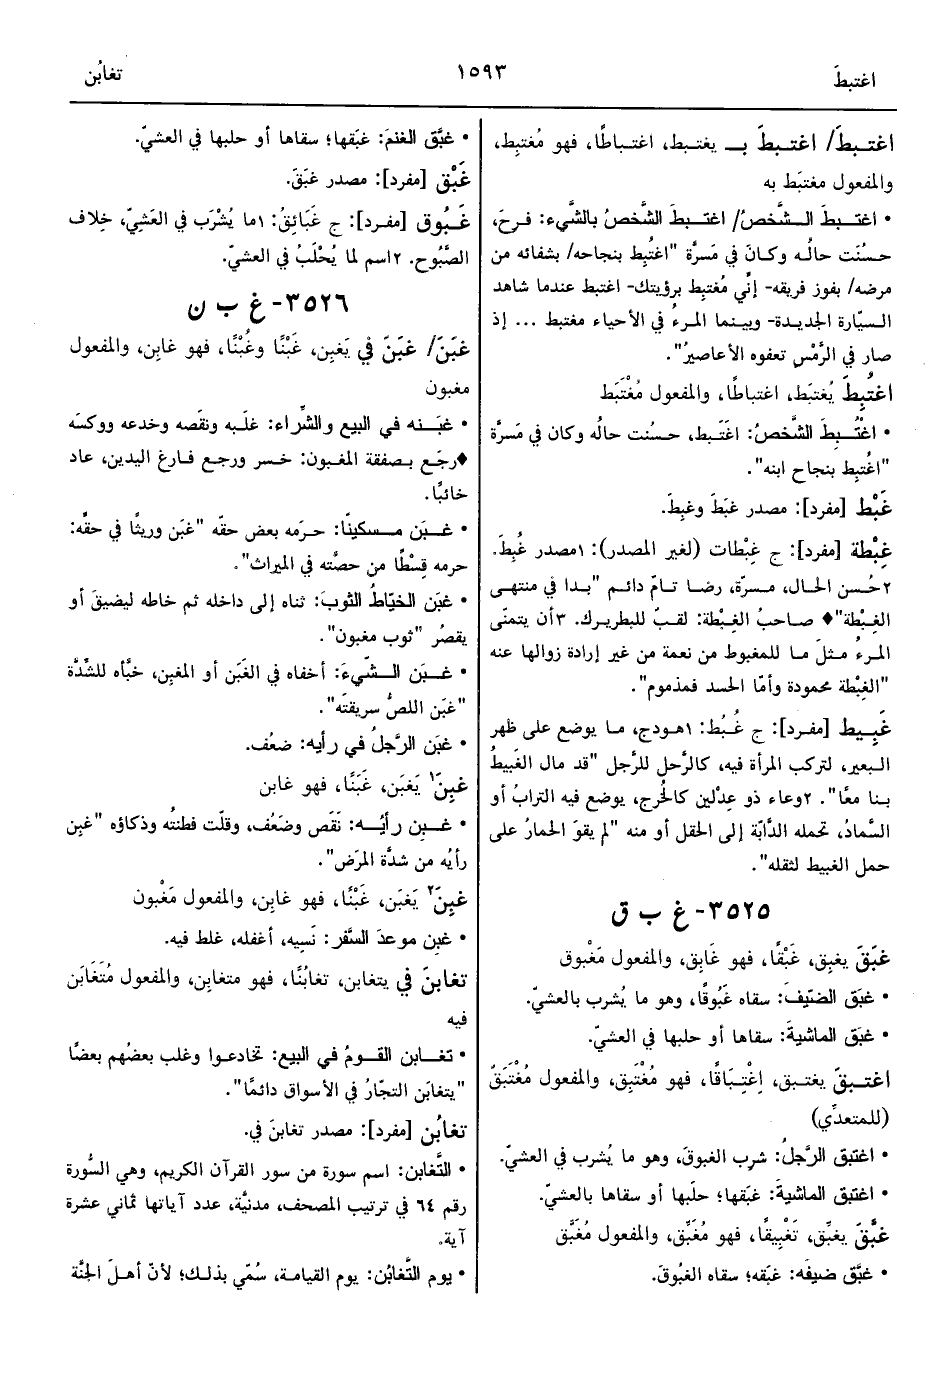 اغتبطَ
١٥٩٣
تغابُن
اغتـبـطَ/ اغتـبـطَ بـ يغتبـط، اغتـبـاطًا، فهو مُغتبِط،
والمفعول مغتبَط به
• اغتـبـطَ الـشَّخصُ/ اغتـبـطَ الشَّخصُ بالشَّيء: فـرِحَ،
حسُنَت حالُـه وكـانَ في مَسـرَّة "اغتُبِط بنجاحه/ بشفائه من
مرضه/ بفوز فريقه- إنّي مُغتبِط برؤيتك- اغتبط عندما شاهد
السيّارة الجديدة- وبينما المرءُ في الأحياء مغتبط ... إذ
صار في الرَّمْسِ تعفوه الأعاصيرُ".
اغتُبِطَ يُغتبَط، اغتباطًا، والمفعول مُغْتَبَط
• اغتُـبِـطَ الشَّخصُ: اغتَبط، حسُنت حالُه وكان في مَسرَّة
"اغتُبِط بنجاح ابنه".
غَبْط [مفرد]: مصدر غبَطَ وغبِطَ.
غِبْطة [مفرد]: ج غِبْطات (لغير المصدر): ١مصدر غُبِطَ.
٢حُسن الحال، مسرّة، رضا تامّ دائم "بدا في منتهى
الغِبْطة"♦ صاحبُ الغِبْطة: لقبٌ للبطريرك. ٣أن يتمنّى
المرءُ مثلَ ما للمغبوط من نعمة من غير إرادة زوالها عنه
"الغِبْطة محمودة وأمّا الحسد فمذموم".
غَبِـيط [مفـرد]: ج غُـبُط: ١هودج، مـا يوضع على ظهر
البعير، لتركب المرأة فيه، كالرَّحل للرَّجل "قد مال الغَبيطُ
بنا معًا". ٢وعاء ذو عِدْلين كالخُرج، يوضع فيه الترابُ أو
السَّمادُ، تحمله الدَّابّة إلى الحقل أو منه "لم يقوَ الحمارُ على
حمل الغبيط لثقله".
٣٥٢٥- غ ب ق
غبَقَ يغبِق، غَبْقًا، فهو غَابِق، والمفعول مَغْبوق
• غبَق الضّيفَ: سقاه غَبُوقًا، وهو ما يُشرب بالعشيّ.
• غبَق الماشيةَ: سقاها أو حلبها في العشيّ.
اغتـبـقَ يغتبق، اِغْتِـبَاقًا، فهو مُغْتَبِق، والمفعول مُغْتَبَقٌ
(للمتعدِّي)
• اغتبق الرَّجلُ: شرِب الغبوقَ، وهو ما يُشرب في العشيّ.
• اغتبق الماشيةَ: غبَقها؛ حلَبها أو سقاها بالعشيّ.
غبَّقَ يغبِّق، تَغْبِيقًا، فهو مُغَبِّق، والمفعول مُغَبَّق
• غبَّق ضيفَه: غبَقه؛ سقاه الغبُوقَ.
• غبَّق الغنمَ: غبَقها؛ سقاها أو حلبها في العشيّ.
غَبْق [مفرد]: مصدر غبَقَ.
غَبُوق [مفرد]: ج غَبَائِقُ: ١ما يُشْرَب في العَشيّ، خِلاف
الصَّبُوح. ٢اسم لما يُحْلَبُ في العشيّ.
٣٥٢٦- غ ب ن
غبَنَ/ غبَنَ في يَغبِن، غَبْنًا وغُبْنًا، فهو غابِن، والمفعول
مغبون
• غبَـنـه في البيع والشِّراء: غلَبه ونقصَه وخدعه ووكسَه
♦رجَع بـصفقة المغبون: خسر ورجع فـارغ اليدين، عاد
خائبًا.
• غـبَن مـسكينًا: حـرَمه بعض حقّه "غبَن وريثًا في حقّه:
حرمه قِسْطًا من حصّته في الميراث".
• غبَن الخيّاطُ الثوبَ: ثناه إلى داخله ثم خاطه ليضيقَ أو
يقصُر "ثوب مغبون".
• غـبَن الـشّيءَ: أخفاه في الغَبَن أو المغبِن، خبَّأه للشِّدَّة
"غبَن اللصُّ سريقتَه".
• غبَن الرَّجلُ في رأيه: ضعُف.
غبِنَ١ يَغبَن، غَبَنًا، فهو غابن
• غـبِن رأيُـه: نَقَص وضَعُف، وقلّت فطنتُه وذكاؤه "غبِن
رأيُه من شدَّة المرَض".
غبِنَ٢ يَغبَن، غَبْنًا، فهو غابِن، والمفعول مَغْبون
• غبِن موعدَ السَّفر: نَسِيه، أغفله، غلط فيه.
تغابنَ في يتغابن، تغابُنًا، فهو متغابِن، والمفعول مُتَغَابَن
فيه
• تغـابن القـومُ في البيع: تخادعـوا وغلب بعضُهم بعضًا
"يتغابَن التجّارُ في الأسواق دائمًا".
تغابُن [مفرد]: مصدر تغابنَ في.
• التَّغابن: اسم سورة من سور القرآن الكريم، وهي السُّورة
رقم ٦٤ في ترتيب المصحف، مدنيَّة، عدد آياتها ثماني عشرة
آية.
• يوم التَّغابُن: يوم القيامة، سُمّي بذلك؛ لأنّ أهلَ الجنَّة